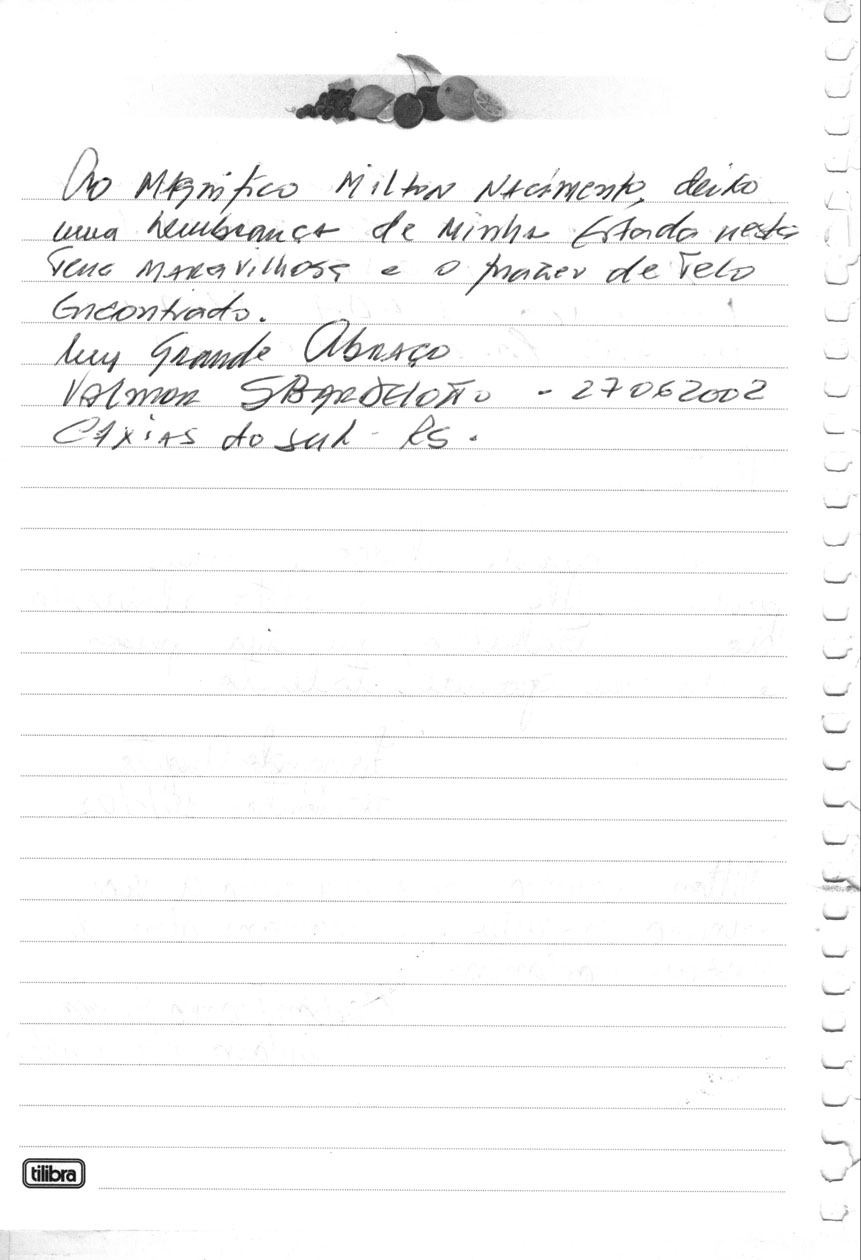 Ao Magnífico Milton Nacimento, deixo
uma lembrança de Minha Estada nesta
Terra MARAvilhosa e o prazer de Telo
Encontrado.
Um Grande Abraço
VAlmor SBARDELOTTO - 27062002
CAXIAS do Sul - RS.
tilibra